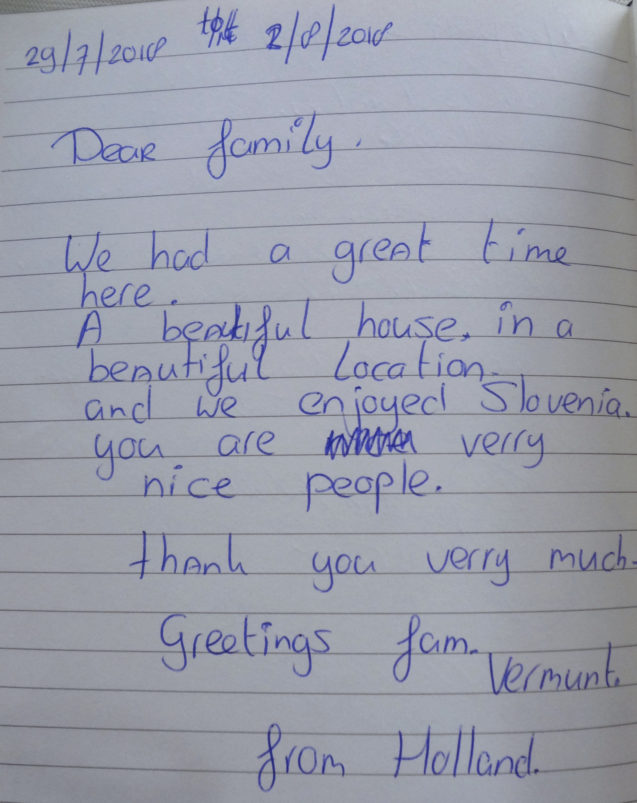 29/7/2018 2/8/2018
Dear family.
We had a great time
here.
A beautiful house, in a
beautiful Location.
and we enjoyed Slovenia.
you are verry
nice people.
thank you verry much.
Greetings fam.
Vermunt.
from Holland.